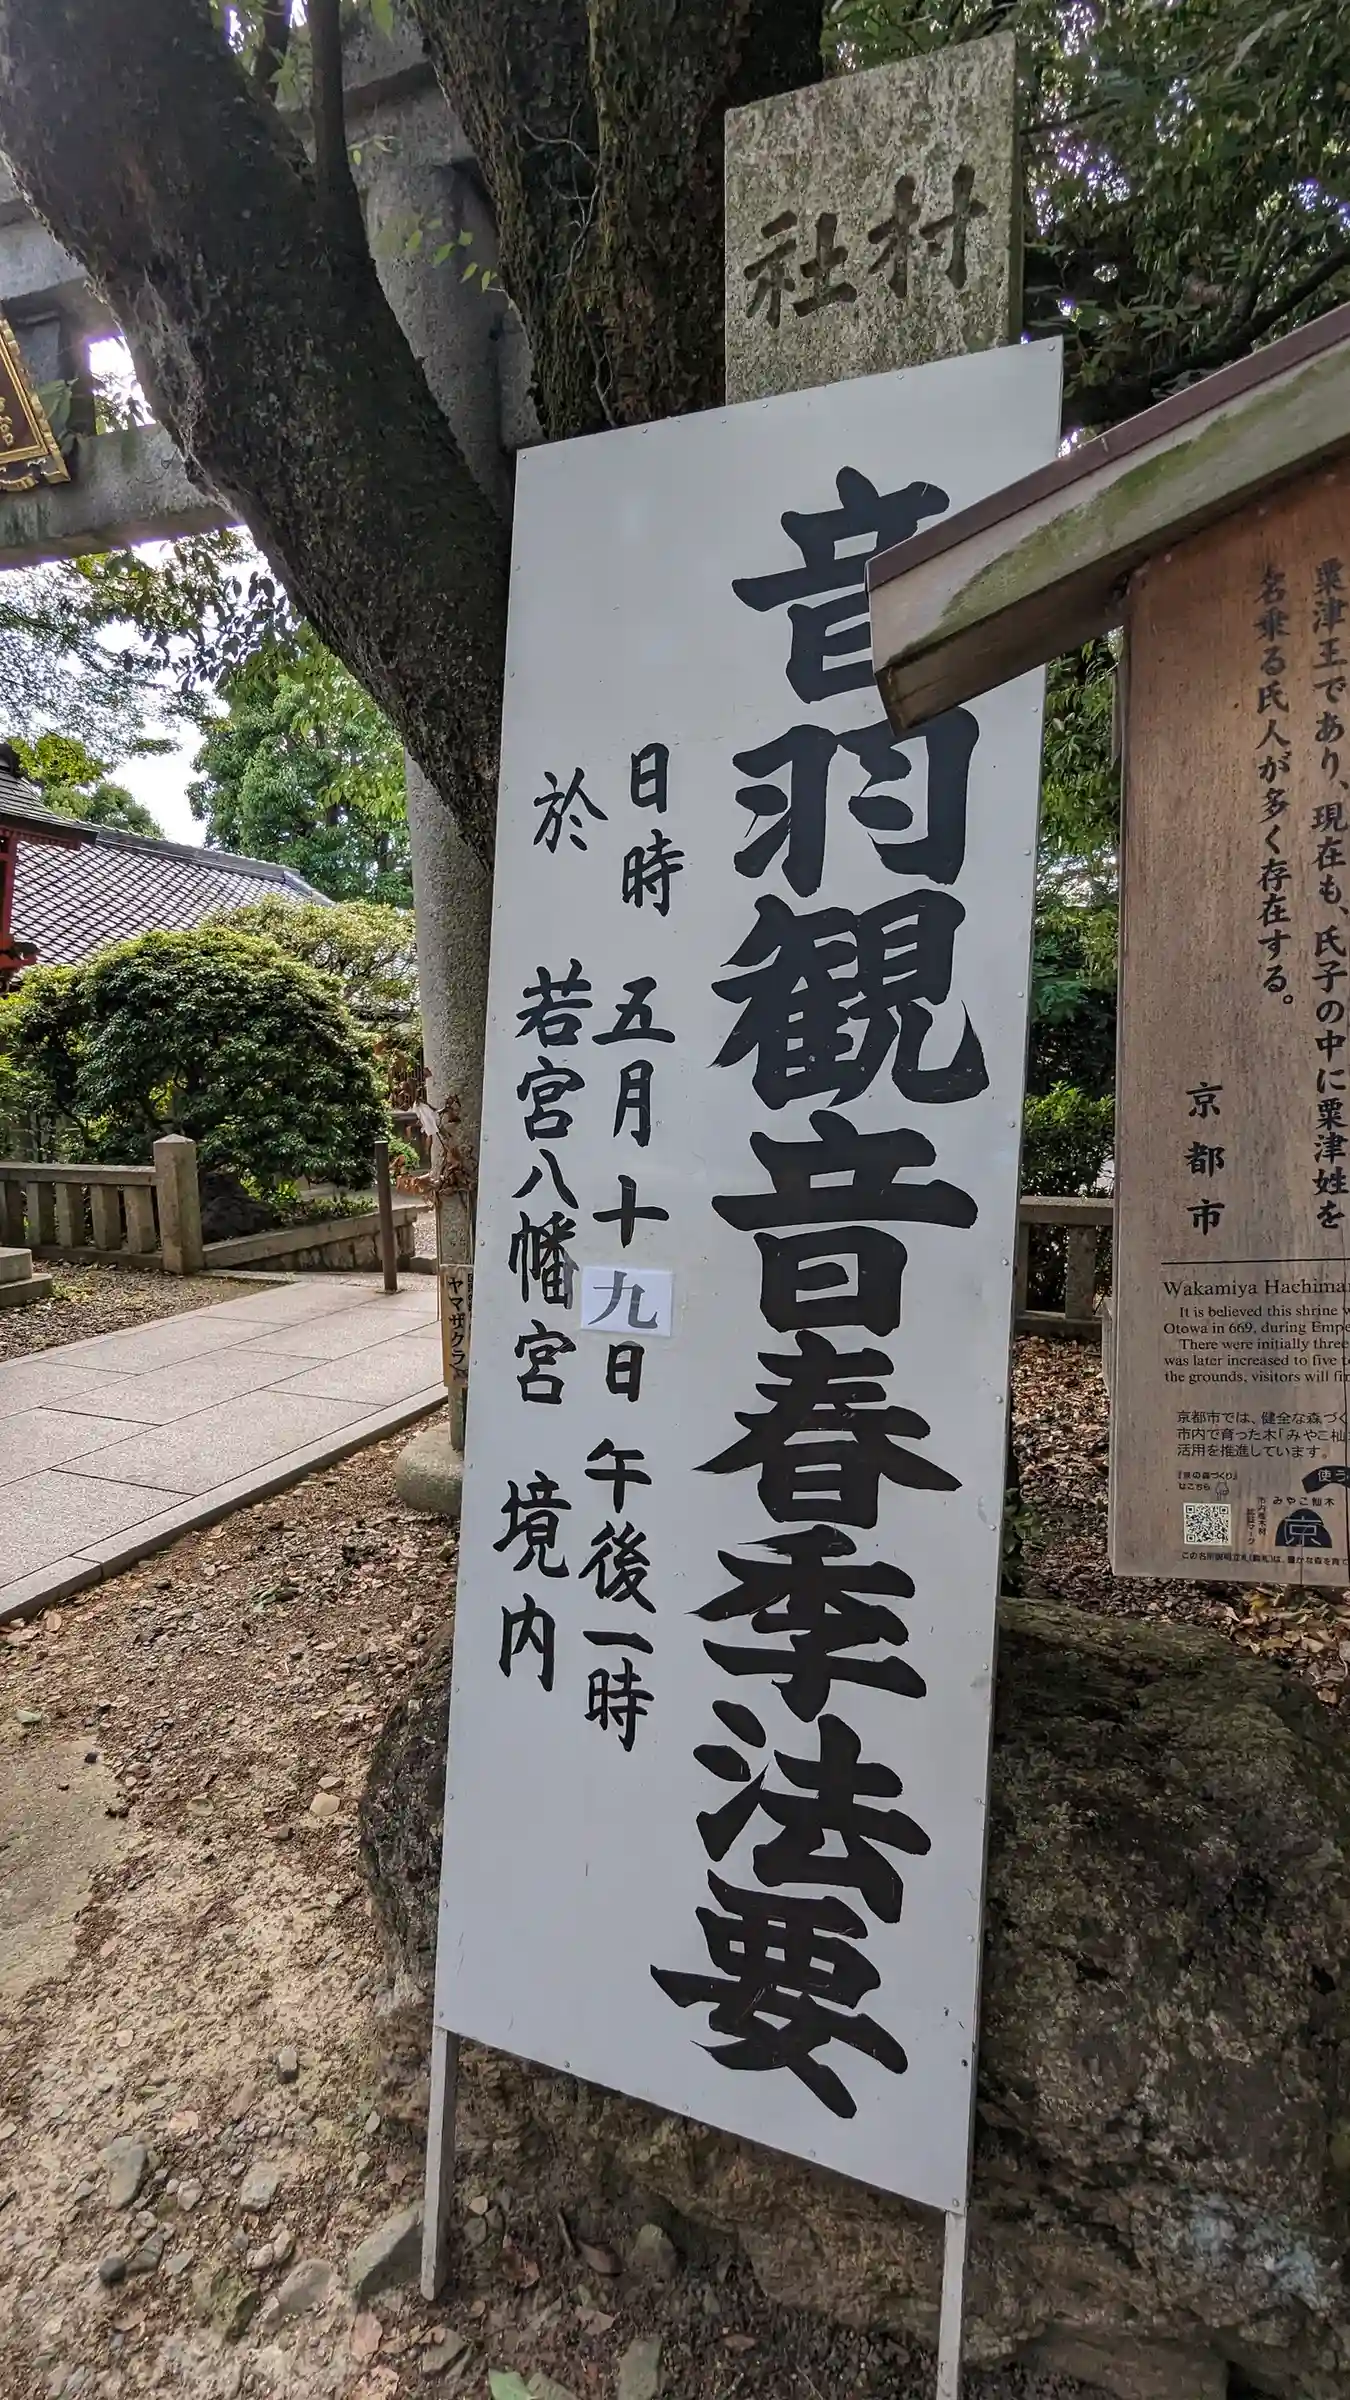 村社
音羽観音春季法要
日時 五月十九日 午後一時
於 若宮八幡宮 境内
ヤマザクラ
粟津王であり、現在も、氏子の中に粟津姓を
名乗る氏人が多く存在する。
京都市
Wakamiya Hachiman
It is believed this shrine
Otowa in 669, during Empe
There were initially three
was later increased to five
the grounds, visitors will
京都市では、健全な森づく
市内で育った木「みやこ杣
活用を推進しています。
『京の森づくり』
はこちら
使う
みやこ杣木
京